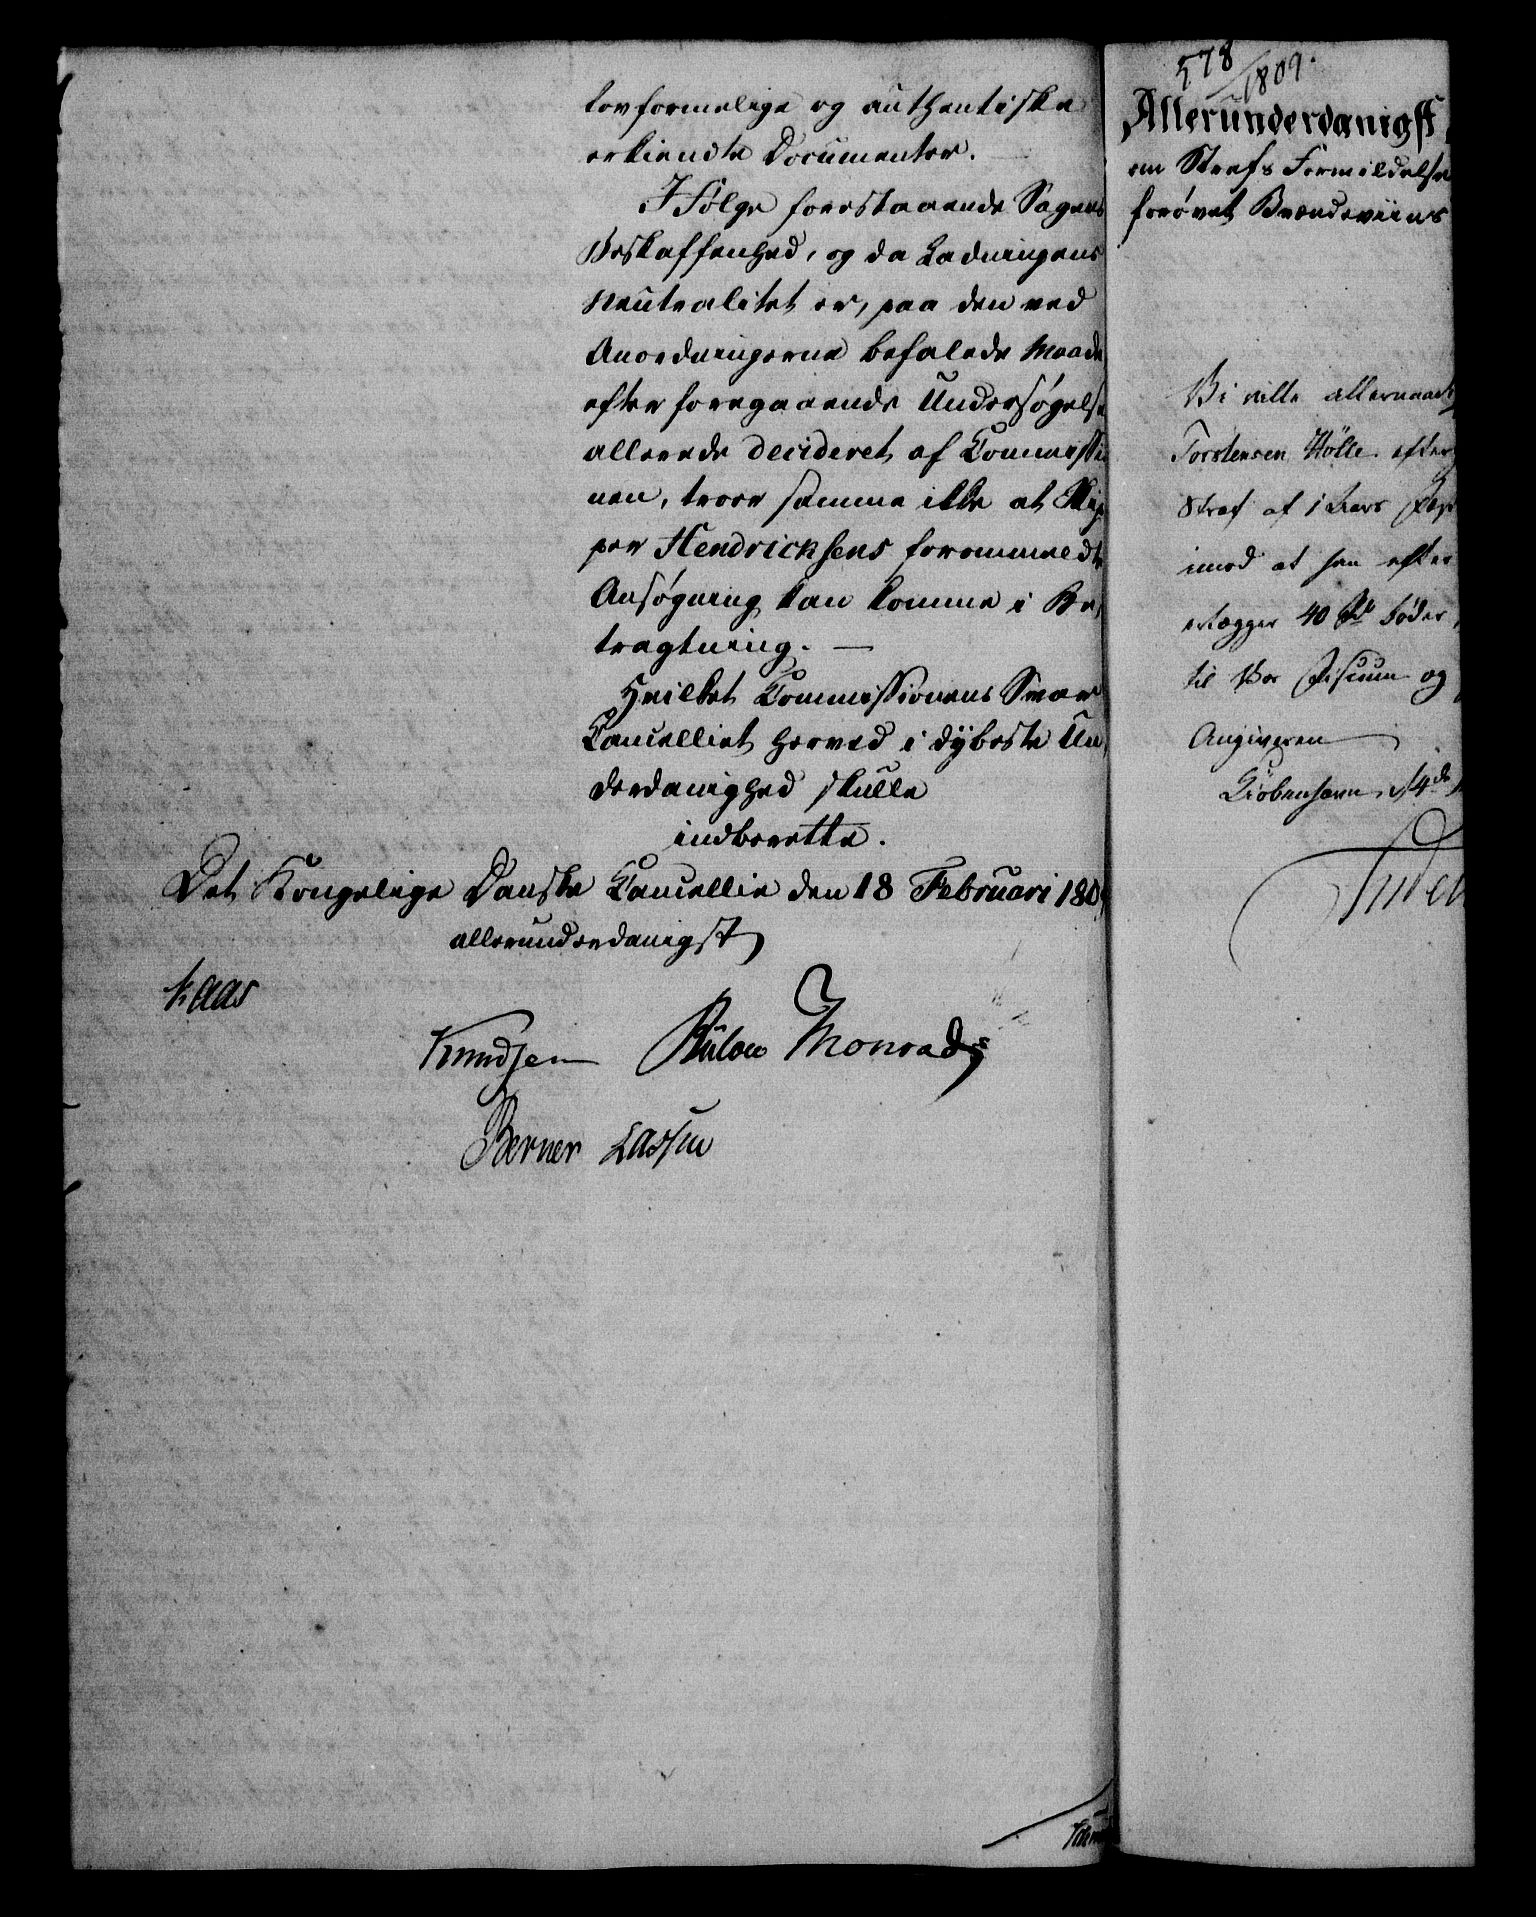 lovformelige og authentiske
erkiendte Documenter.
I Følge forestaaende Sagens
Beskaffenhed, og da Ladningens
Neutralitet er, paa den ved
Anordningerne befalede Maade
efter foregaaende Undersøgelse
allerede decideret af Commissio
nen, troer samme ikke at Skip
per Hendricksens forommeldte
Ansøgning kan komme i Be
tragtning. —
Hvilket Commissionens Svar
Cancelliet herved i dybeste Un
derdanighed skulle
indberette.
Det Kongelige Danske Cancellie den 18 Februari 1809
allerunderdanigst
Kaas
Knudsen Bülow Monrad
Berner Lassen
578
1809.
Allerunderdanigst
om Strafs Formildelse
forøvet Brændeviins
Vi ville allernaad
Torstensen Hølle efter
Straf af 1 Aars
imod at han efter
erlægger 40 Rd Bøder
til Vor Fiscum og
Angiveren
Kiöbenhavn d 4de